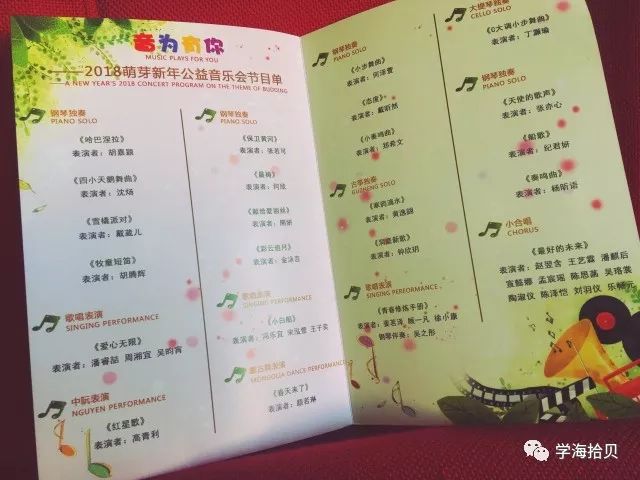 音为有你
MUSIC PLAYS FOR YOU
——2018萌芽新年公益音乐会节目单
——A NEW YEAR'S 2018 CONCERT PROGRAM ON THE THEME OF BUDDING
钢琴独奏
PIANO SOLO
《哈巴涅拉》
表演者：胡嘉颖
《四小天鹅舞曲》
表演者：沈炀
《雪橇派对》
表演者：戴蓝儿
《牧童短笛》
表演者：胡腾辉
歌唱表演
SINGING PERFORMANCE
《爱心无限》
表演者：潘睿喆 周湘宜 吴昀霄
中阮表演
NGUYEN PERFORMANCE
《红星歌》
表演者：高青利
钢琴独奏
PIANO SOLO
《保卫黄河》
表演者：张若可
表演者：何欣
《献给爱丽丝》
《彩云追月》
表演者：金泳言
歌唱表演
SINGING PERFORMANCE
《小白船》
表演者：冯乐宜 宋泓萱 王子奕
蒙古舞表演
MONGOLIA DANCE PERFORMANCE
《春天来了》
表演者：颜若琳
钢琴独奏
PIANO SOLO
《小步舞曲》
表演者：何泽萱
《态度》
表演者：戴昕然
《小奏鸣曲》
表演者：郑希文
古筝独奏
GUZHENG SOLO
《寒鸦戏水》
表演者：黄逸韵
表演者：钟欣玥
歌唱表演
SINGING PERFORMANCE
《青春修炼手册》
表演者：姜若泽 顾一凡 徐小康
钢琴伴奏：吴之彤
大提琴独奏
CELLO SOLO
《G大调小步舞曲》
表演者：丁灏瑜
钢琴独奏
PIANO SOLO
《天使的歌声》
表演者：张亦心
《船歌》
表演者：纪君妍
《奏鸣曲》
表演者：杨昕语
小合唱
CHORUS
《最好的未来》
表演者：赵翌含 王艺霖 潘麒后
宣懿娜 孟宸瑶 陈思菡 吴珞裳
陶淑仪 陈泽恺 刘羽仪 乐畅元
学海拾贝